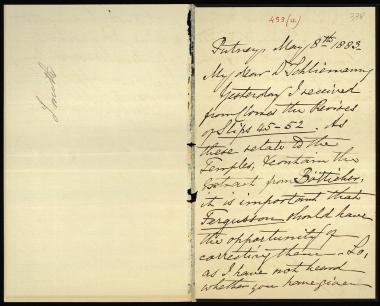 Smith
493(a)
338
Putney, May 8th 1883.
My dear Dr Schliemann
Yesterday I received
from Clowes the Revises
of Slips 45-52. As
these relate to the
Temples, & contain the
Extract from Bötticher,
it is important that
Fergusson should have
the opportunity of
correcting them. So,
as I have not heard
whether you have given